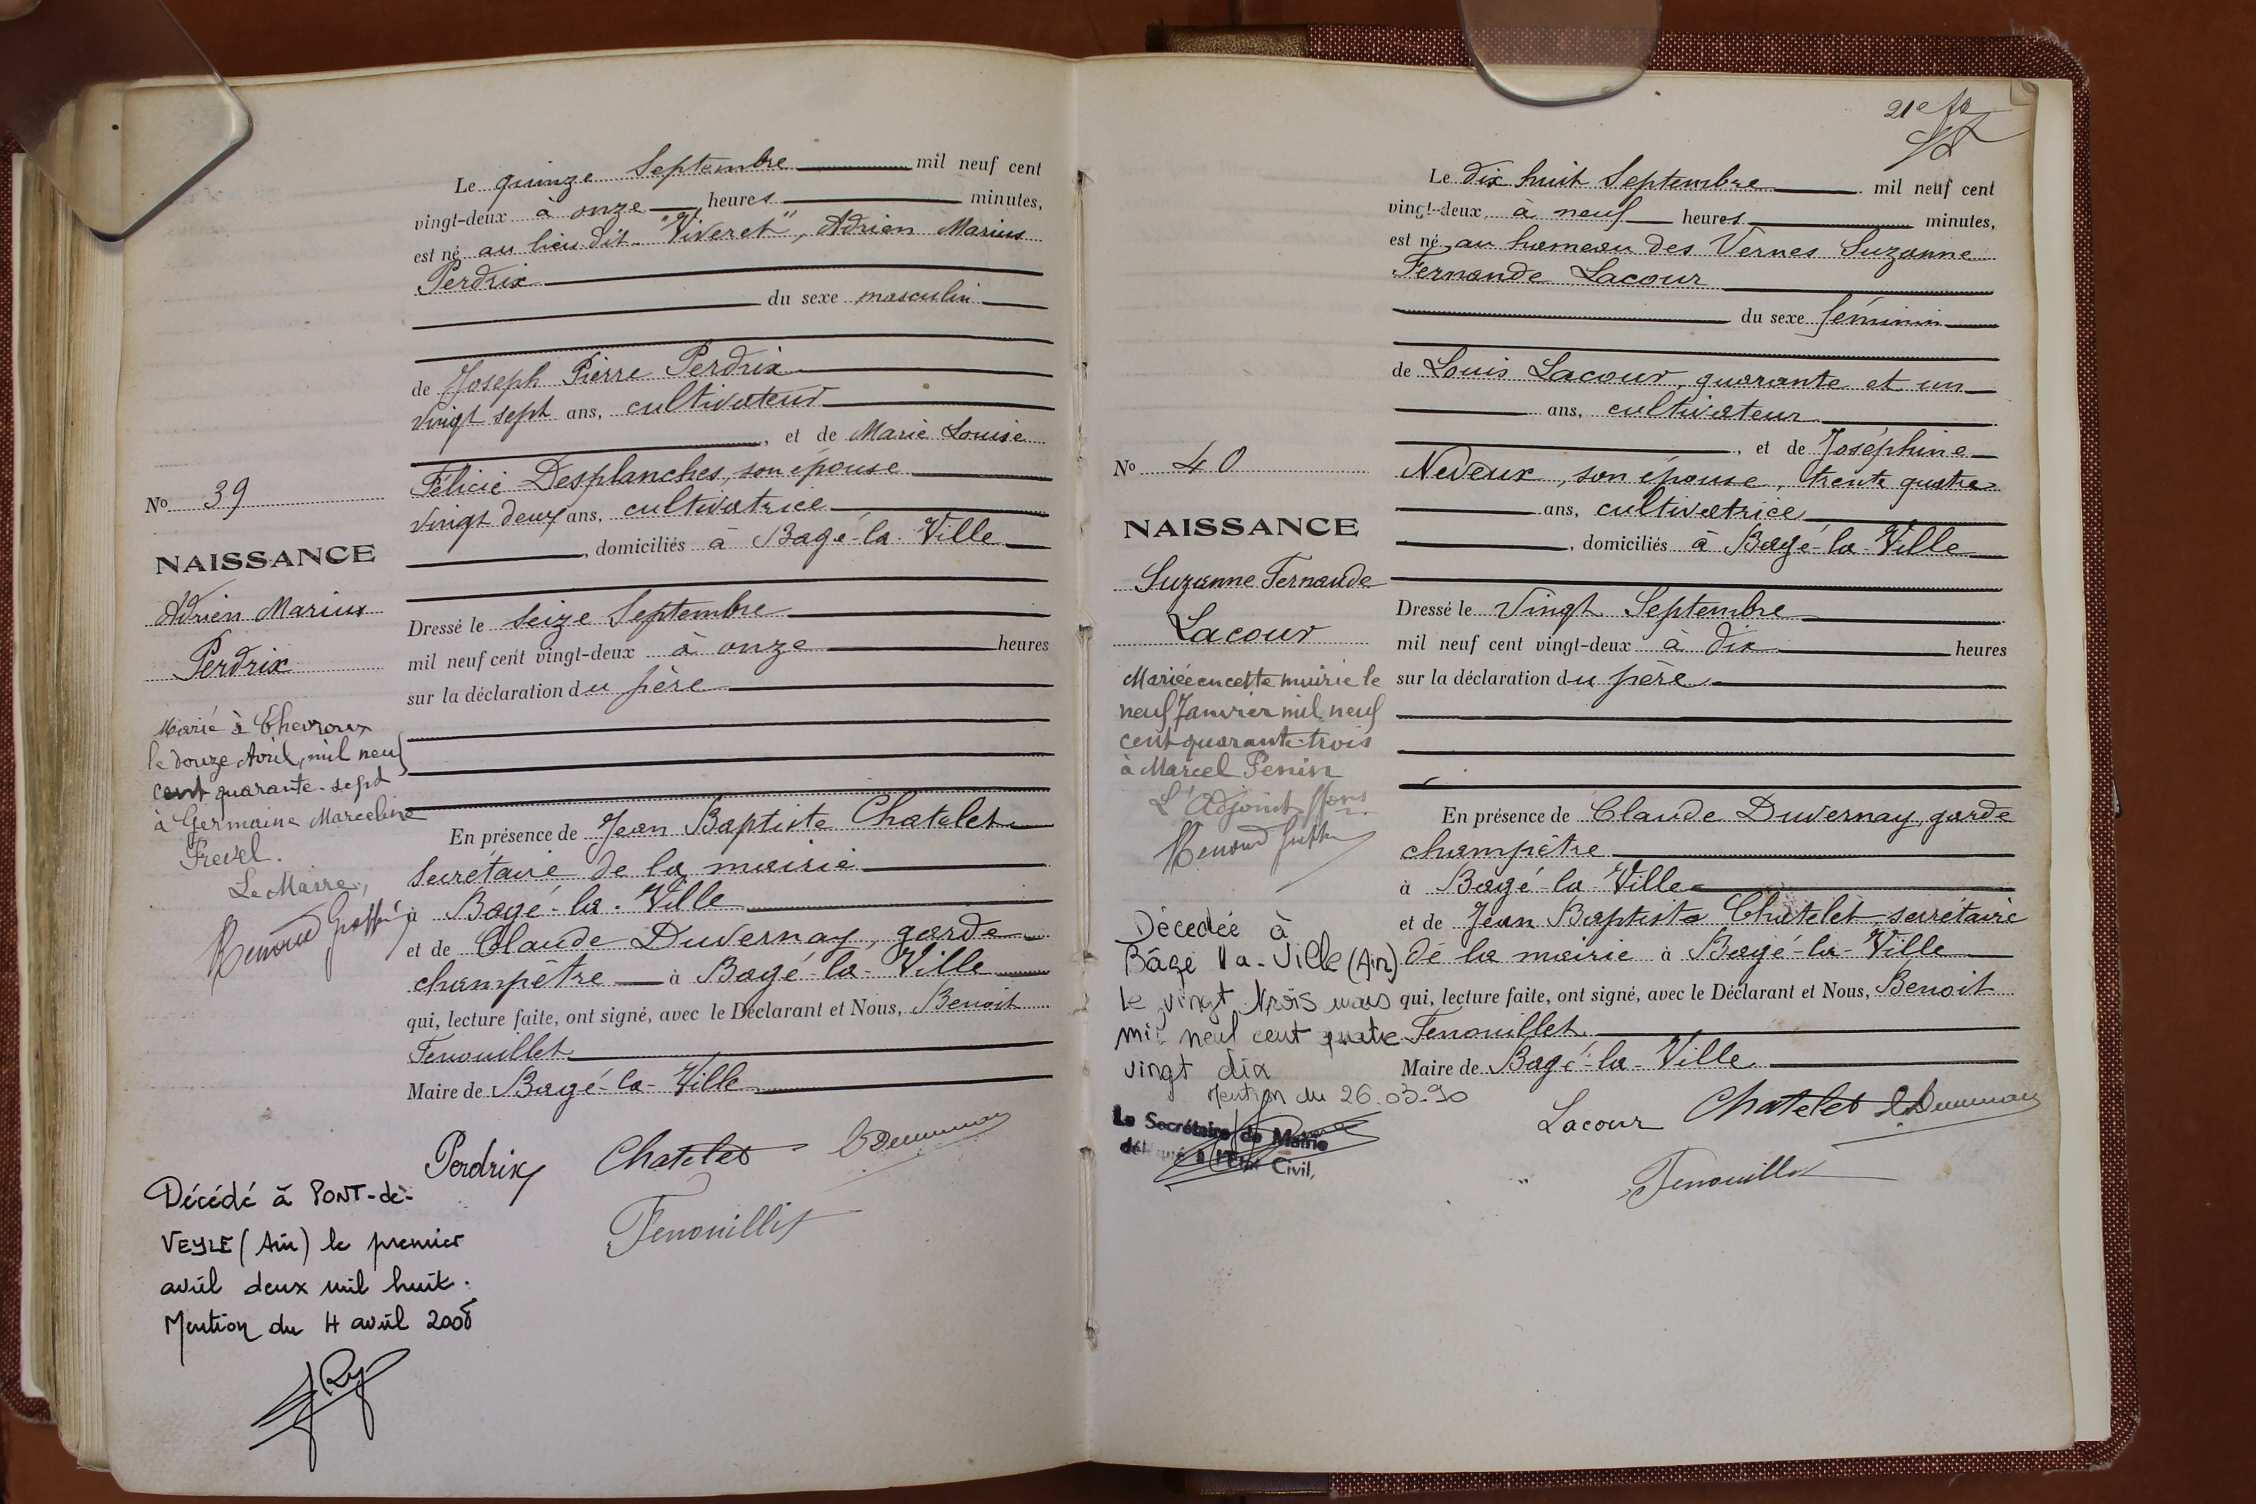 Le quinze Septembre mil neuf cent
vingt-deux à onze heures minutes,
est né au lieu dit "Viveret", Adrien Marius
Perdrix
du sexe masculin
de Joseph Pierre Perdrix
vingt sept ans, cultivateur
, et de Marie Louise
Félicie Desplanches, son épouse
vingt deux ans, cultivatrice
, domiciliés à Bagé-la-Ville
Dressé le seize Septembre
mil neuf cent vingt-deux à onze heures
sur la déclaration du père
En présence de Jean Baptiste Chatelet
secrétaire de la mairie
à Bagé-la-Ville
et de Claude Duvernay, garde
champêtre à Bagé-la-Ville
qui, lecture faite, ont signé, avec le Déclarant et Nous, Benoit
Fenouillet
Maire de Bagé-la-Ville
Perdrix Chatelet C Duvernay
Fenouillet
No 39
NAISSANCE
Adrien Marius
Perdrix
Marié à Chevroux
le douze Avril mil neuf
cent quarante-sept
à Germaine Marceline
Prevel.
Le Maire,
Décédé à PONT-de-
VEYLE (Ain) le premier
avril deux mil huit.
Mention du 4 avril 2008
21e
Le dix huit Septembre mil neuf cent
vingt-deux, à neuf heures minutes,
est né au hameau des Vernes Suzanne
Fernande Lacour
du sexe féminin
de Louis Lacour, quarante et un
ans, cultivateur
, et de Joséphine
Neveux, son épouse, trente quatre
ans, cultivatrice
, domiciliés à Bagé-la-Ville
Dressé le vingt Septembre
mil neuf cent vingt-deux à dix heures
sur la déclaration du père
En présence de Claude Duvernay, garde
champêtre
à Bagé-la-Ville
et de Jean Baptiste Chatelet secrétaire
de la mairie à Bagé-la-Ville
qui, lecture faite, ont signé, avec le Déclarant et Nous, Benoit
Fenouillet
Maire de Bagé-la-Ville
Lacour Chatelet C Duvernay
Fenouillet
No 40
NAISSANCE
Suzanne Fernande
Lacour
Mariée en cette mairie le
neuf Janvier mil neuf
cent quarante-trois
à Marcel Penin
L'Adjoint
Décedée à
Bâgé la-Ville (Ain)
le vingt trois mars
mil neuf cent quatre
vingt dix
Mention du 26.03.90
Le Secrétaire de Mairie
délégué à l'Etat Civil,